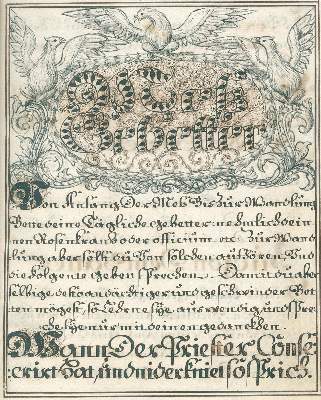 Meß
Gebetter
Von Anfang Der Meß Biß Zur Wandlung
Bette deine Tägliche gebetter nemblich dein
nen Rosenkrantz oder officium. etc. Zur Wand
lung aber solst du Von solchen auf hören Und
die folgente gebett sprechen. Damit du aber
selbige desto andächtiger und geschwinder Bet
ten mögest, so lehrne sye auswendig und spre
che sye nur mit deinen gedancken.
Wann Der Priester Conse
crirt Hat, und niderkniet so sprich.